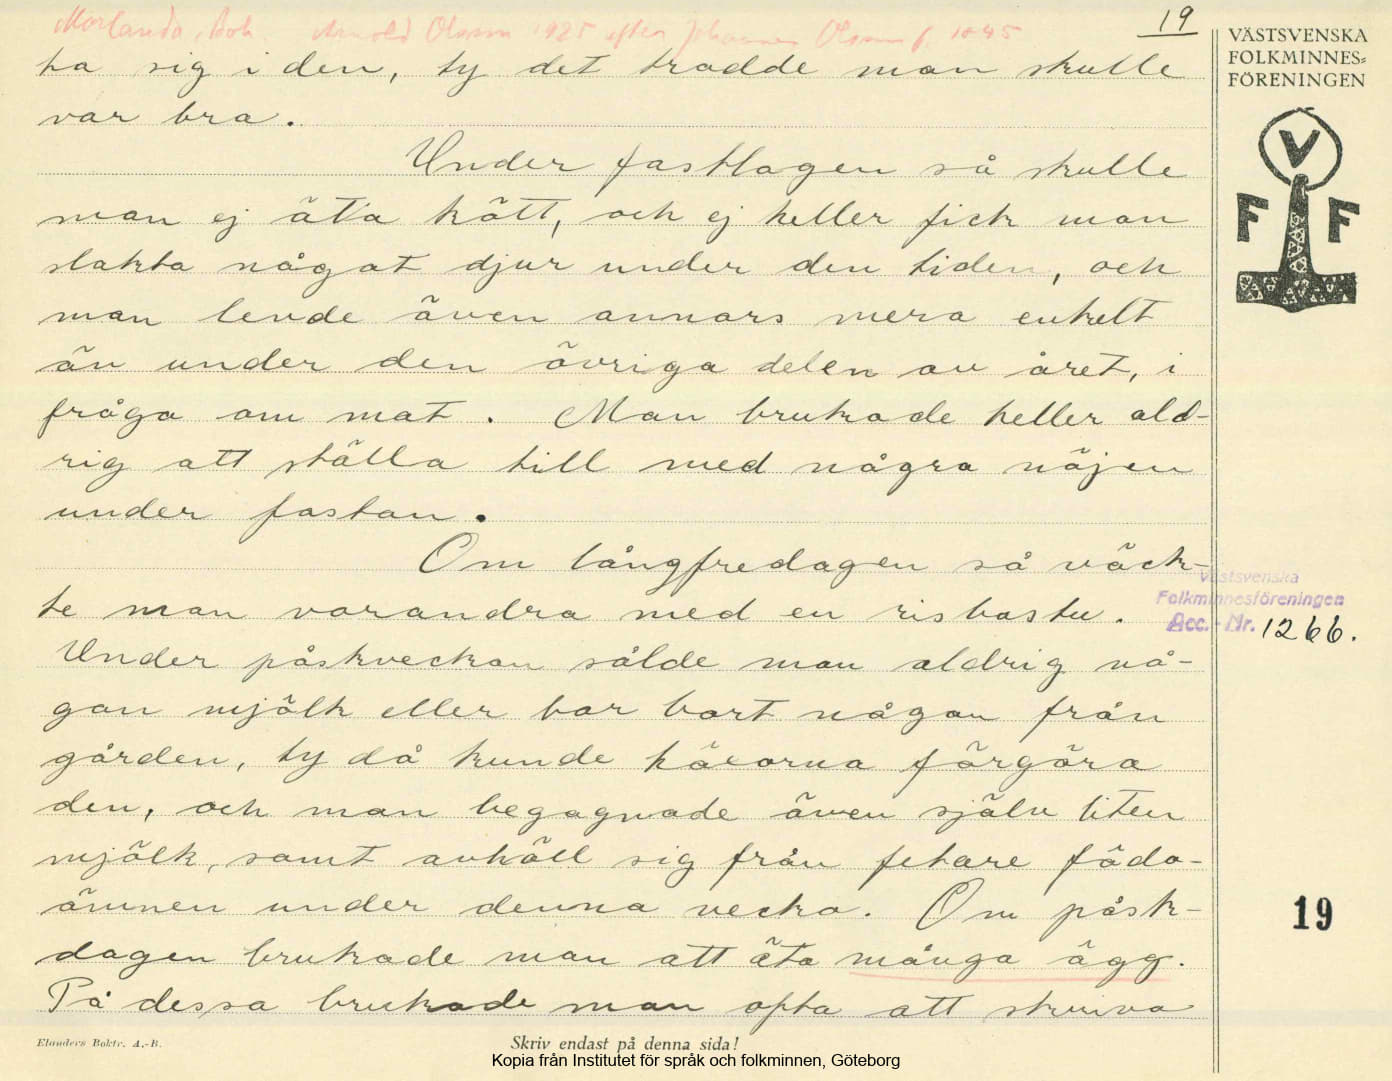 19
Morlanda, Boh. Arnold Olsson 1925 efter Johannes Olsson f. 1845
VÄSTSVENSKA
FOLKMINNES=
FÖRENINGEN
V
F F
ta sig i den, ty det trodde man skulle
var bra.
Under fastlagen så skulle
man ej äta kött, och ej heller fick man
slakta något djur under den tiden, och
man levde även annars mera enkelt
än under den övriga delen av året, i
fråga om mat. Man brukade heller ald-
rig att ställa till med några nöjen
under fastan.
Om långfredagen så väck-
te man varandra med en risbastu.
Västsvenska
Folkminnesföreningen
Acc.-Nr. 1266.
Under påskveckan sålde man aldrig nå-
gon mjölk eller bar bort någon från
gården, ty då kunde häxorna förgöra
den, och man begagnade även själv liten
mjölk, samt avhöll sig från fetare födo-
ämnen under denna vecka. Om påsk-
19
dagen brukade man att äta många ägg.
På dessa brukade man ofta att skriva
Elanders Boktr. A.-B.
Skriv endast på denna sida!
Kopia från Institutet för språk och folkminnen, Göteborg